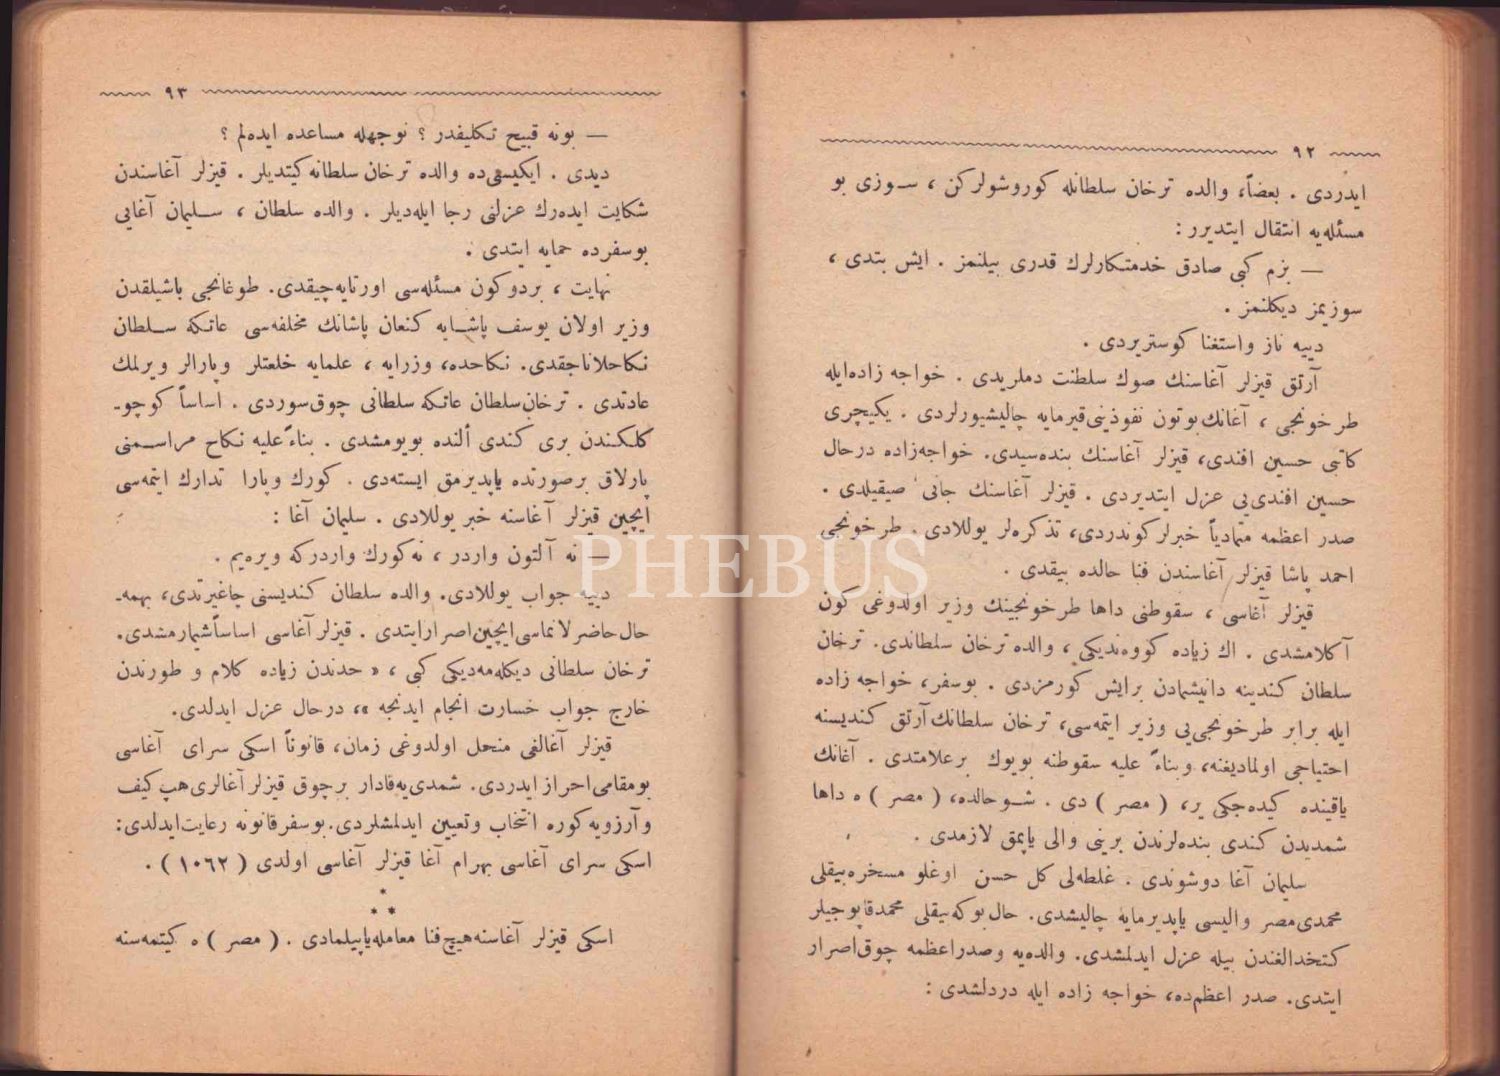 ٩٢
ايدردى . بعضاً، والده ترخان سلطانله كوروشولركن ، سوزى بو
مسئله‌يه انتقال ايتديرر :
— بزم كبى صادق خدمتكارلرك قدرى بيلنمز . ايش بتدى ،
سوزيمز ديكلنمز .
دييه ناز واستغنا كوستريردى .
آرتق قيزلر آغاسنك صوك سلطنت دملريدى . خواجه زاده‌ايله
طرخونجى ، آغانك بوتون نفوذينى قيرمايه چاليشيورلردى . يكيچرى
كاتبى حسين افندى، قيزلر آغاسنك بنده‌سيدى. خواجه‌زاده درحال
حسين افندى‌يى عزل ايتديردى . قيزلر آغاسنك جانى صيقيلدى .
صدر اعظمه متمادياً خبرلر كوندردى، تذكره‌لر يوللادى. طرخونجى
احمد پاشا قيزلر آغاسندن فنا حالده بيقدى .
قيزلر آغاسى ، سقوطنى داها طرخونجينك وزير اولدوغى كون
آكلامشدى . اك زياده كووه‌نديكى ، والده ترخان سلطاندى. ترخان
سلطان كندينه دانيشمادن برايش كورمزدى . بوسفر، خواجه زاده
ايله برابر طرخونجى‌يى وزير ايتمه‌سى، ترخان سلطانك آرتق كنديسنه
احتياجى اولماديغنه، وبناءً عليه سقوطنه بويوك برعلامتدى . آغانك
ياقينده كيده‌جكى ير، ( مصر ) دى . شو حالده، ( مصر ) ه داها
شمديدن كندى بنده‌لرندن برينى والى ياپمق لازمدى .
سليمان آغا دوشوندى . غلطه‌لى كل حسن اوغلو مسخره‌بيقلى
محمدى مصر واليسى ياپديرمايه چاليشدى. حال‌بوكه بيقلى محمد قاپوجيلر
كتخدالغندن بيله عزل ايدلمشدى. والده‌يه وصدراعظمه چوق اصرار
ايتدى. صدر اعظم‌ده، خواجه زاده ايله دردلشدى :
٩٣
— بونه قبيح تكليفدر ؟ نوجهله مساعده ايده‌لم ؟
ديدى . ايكيسى‌ده والده ترخان سلطانه كيتديلر . قيزلر آغاسندن
شكايت ايده‌رك عزلنى رجا ايله‌ديلر . والده سلطان ، سليمان آغايى
بوسفرده حمايه ايتدى .
نهايت ، بردوكون مسئله‌سى اورتايه‌چيقدى. طوغانجى باشيلقدن
وزير اولان يوسف پاشايه كنعان پاشانك مخلفه‌سى عاتكه سلطان
نكاحلاناجقدى. نكاحده، وزرايه ، علمايه خلعتلر وپارالر ويرلمك
عادتدى . ترخان سلطان عاتكه سلطانى چوق‌سوردى . اساساً كوچو-
كلكندن برى كندى ألنده بويومشدى . بناءً عليه نكاح مراسمنى
پارلاق برصورتده ياپديرمق ايسته‌دى . كورك وپارا تدارك ايتمه‌سى
ايچين قيزلر آغاسنه خبر يوللادى . سليمان آغا :
— نه آلتون واردر ، نه‌كورك واردركه ويره‌يم .
دييه جواب يوللادى. والده سلطان كنديسنى چاغيرتدى، بهمه-
حال حاضرلانماسى ايچين اصرارايتدى . قيزلر آغاسى اساساً شيمارمشدى.
ترخان سلطانى ديكله‌مه‌ديكى كبى ، « حدندن زياده كلام و طورندن
خارج جواب خسارت انجام ايدنجه »، درحال عزل ايدلدى.
قيزلر آغالغى منحل اولدوغى زمان، قانوناً اسكى سراى آغاسى
بومقامى احراز ايدردى. شمدى‌يه‌قادار برچوق قيزلر آغالرى هپ كيف
وآرزويه كوره انتخاب وتعيين ايدلمشلردى. بوسفر قانونه رعايت ايدلدى:
اسكى سراى آغاسى بهرام آغا قيزلر آغاسى اولدى ( ١٠٦٢ ) .
*
* *
اسكى قيزلر آغاسنه هيچ فنا معامله ياپيلمادى . ( مصر ) ه كيتمه‌سنه
PHEBUS